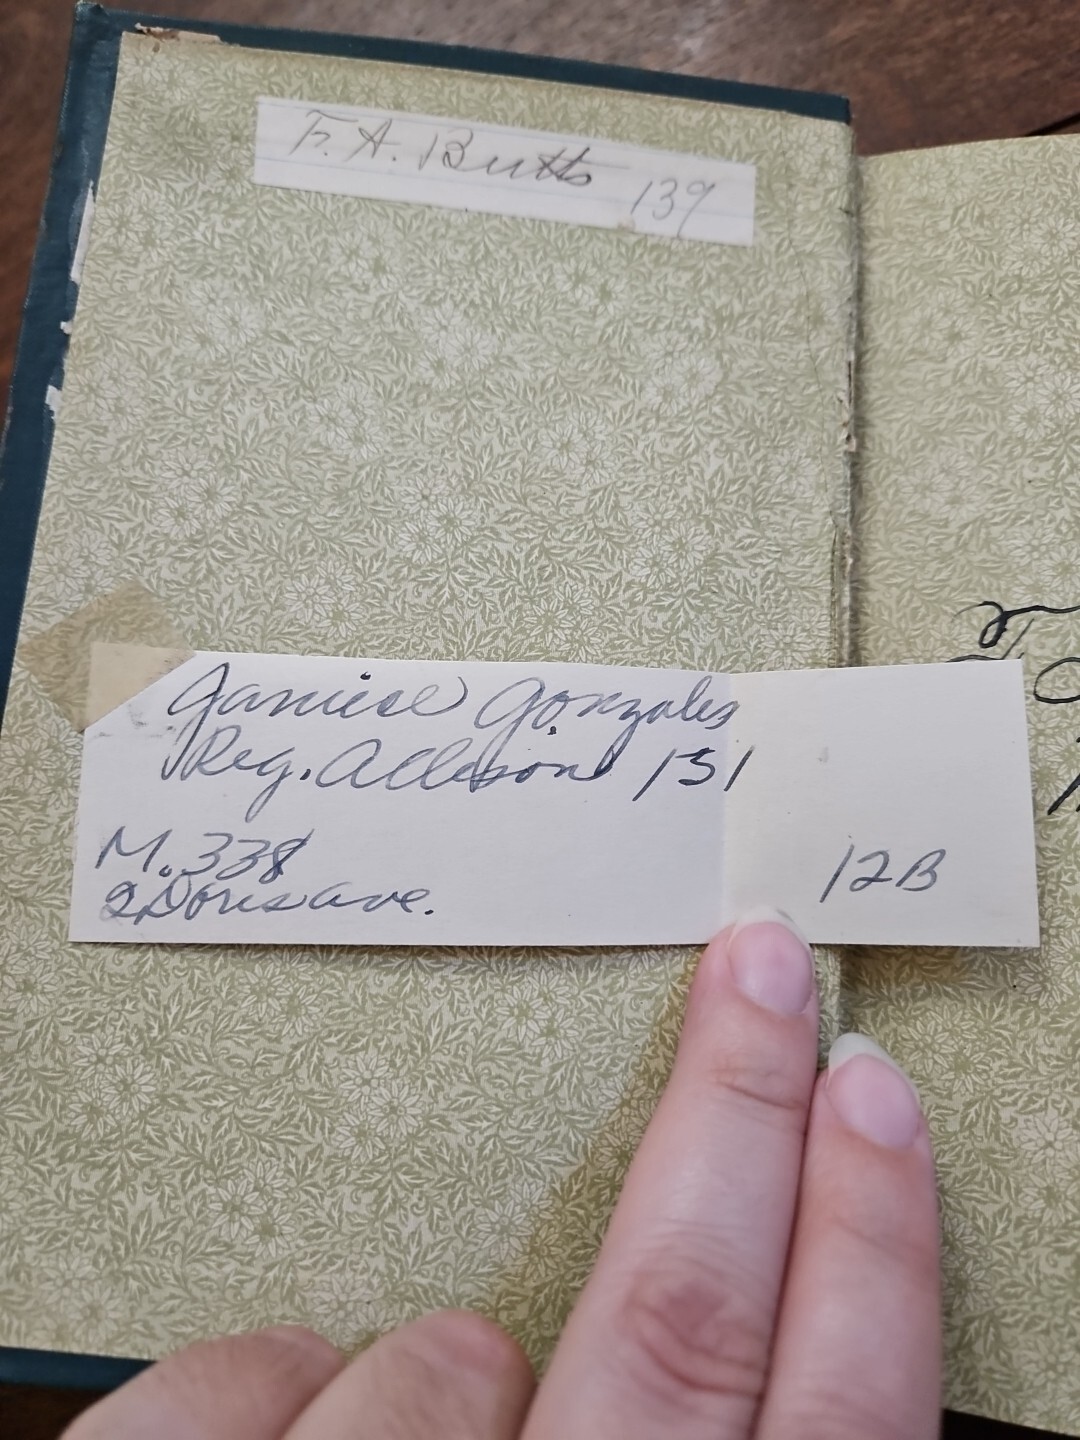 F. A. Butts 139
Janiese Gonzales
Reg. Allison 151
M. 338
2 Doris ave.
12B